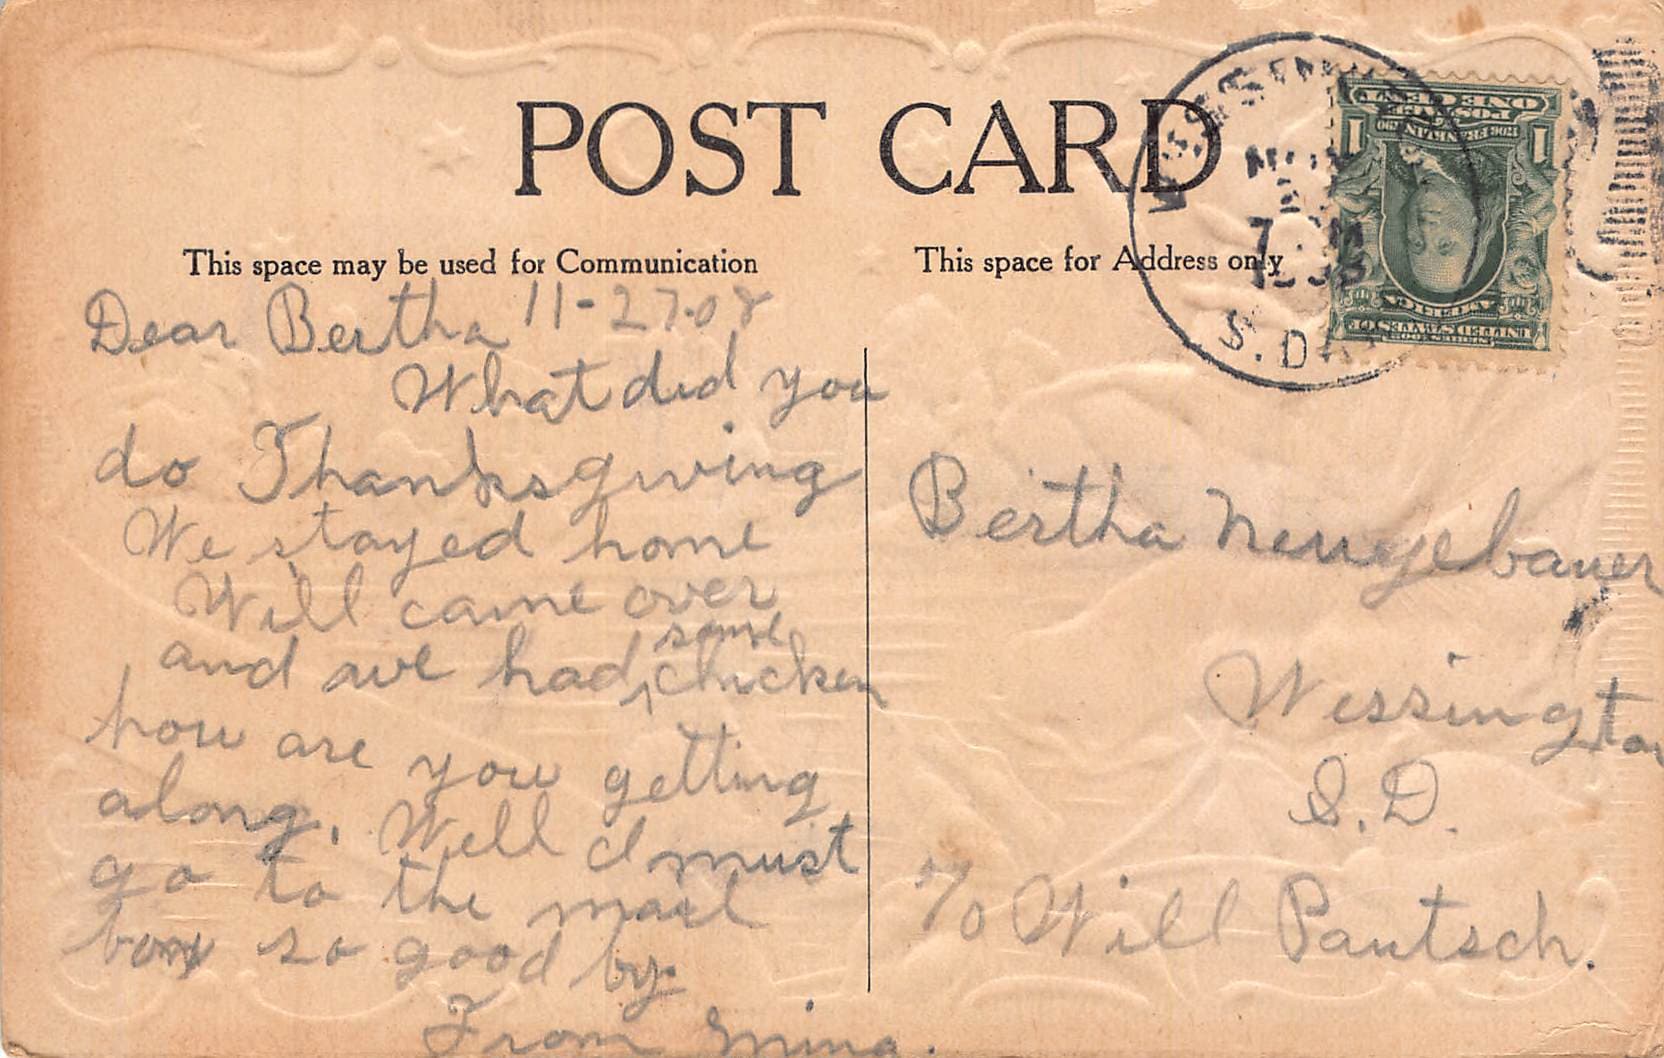 POST CARD
This space may be used for Communication
This space for Address only
Dear Bertha 11-27-08
What did you
do Thanksgiving
We stayed home
Will came over
and we had some chicken
how are you getting
along. Well I must
go to the mail
box so good by.
From Mina.
Bertha Neugebauer
Wessington
S.D.
c/o Will Pautsch.
NOV
7
1908
S. DAK
ONE CENT
POSTAGE
1 1
1706 FRANKLIN 1790
UNITED STATES
AMERICA
SERIES 1902